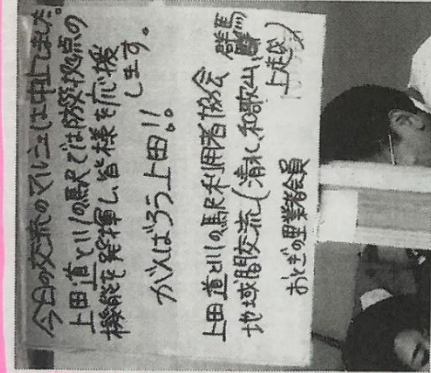 今日の交流のマルシェは中止しました。
上田道と川の駅では防災拠点の
機能を発揮し皆様を応援
します。
がんばろう上田!!
上田道と川の駅利用者協会
地域間交流(清水、和歌山、群馬
上走袋)
おとぎの里業者会員